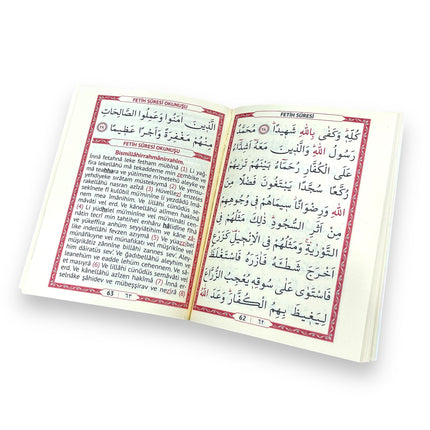 FETİH SÛRESİ
كُلِّهٖ وَكَفٰى بِاللّٰهِ شَهٖيدًا ﴿٢٨﴾ مُحَمَّدٌ
رَسُولُ اللّٰهِ وَالَّذٖينَ مَعَهُٓ اَشِدَّٓاءُ
عَلَى الْكُفَّارِ رُحَمَٓاءُ بَيْنَهُمْ تَرٰيهُمْ
رُكَّعًا سُجَّدًا يَبْتَغُونَ فَضْلًا مِنَ
اللّٰهِ وَرِضْوَانًا سٖيمَاهُمْ فٖى وُجُوهِهِمْ
مِنْ اَثَرِ السُّجُودِ ذٰلِكَ مَثَلُهُمْ فِى
التَّوْرٰيةِ وَمَثَلُهُمْ فِى الْاِنْجٖيلِ كَزَرْعٍ
اَخْرَجَ شَطْـَٔهُ فَاٰزَرَهُ فَاسْتَغْلَظَ
فَاسْتَوٰى عَلٰى سُوقِهٖ يُعْجِبُ الزُّرَّاعَ
لِيَغٖيظَ بِهِمُ الْكُفَّارَ وَعَدَ اللّٰهُ
62 ٦٢
FETİH SÛRESİ OKUNUŞU
الَّذٖينَ اٰمَنُوا وَعَمِلُوا الصَّالِحَاتِ
مِنْهُمْ مَغْفِرَةً وَاَجْرًا عَظٖيمًا ﴿٢٩﴾
FETİH SÛRESİ OKUNUŞU
Bismillâhirrahmânirrahîm.
İnnâ fetahnâ leke fetham mübînâ (1) Li yağ-
fira lekellâhü mâ tekaddeme min zembike ve
mâ teahhara ve yütimme ni'metehû aleyke ve
yehdiyeke sırâtam müstekıymâ (2) Ve yensu-
rakellâhü nasran azîzâ (3) Hüvellezî enzeles
sekînete fî kulûbil mü'minîne li yezdâdû îmâ-
nem mea îmânihim. Ve lillâhi cünûdüs semâ-
vâti vel erd. Ve kânellâhü alîmen hakîmâ
(4) Li yüdhılel mü'minîne vel mü'minâti cen-
nâtin tecrî min tahtihel enhâru hâlidîne fîhâ
ve yükeffira anhüm seyyiâtihim ve kâne zâ-
like indellâhi fevzen azîmâ (5) Ve yüazzibel
münâfikıyne vel münafikâti vel müşrikîne vel
müşrikâtiz zânnîne billâhi zannes sev'. Aley-
him dâiratüs sev'. Ve ğadıbellâhü aleyhim ve
leanehüm ve eadde lehüm cehennem. Ve sâ-
et masıyrâ (6) Ve lillâhi cünûdüs semâvâti vel
erd. Ve kânellâhü azîzen hakîmâ (7) İnnâ er-
selnâke şâhidev ve mübeşşirav ve nezîrâ (8)
63 ٦٣